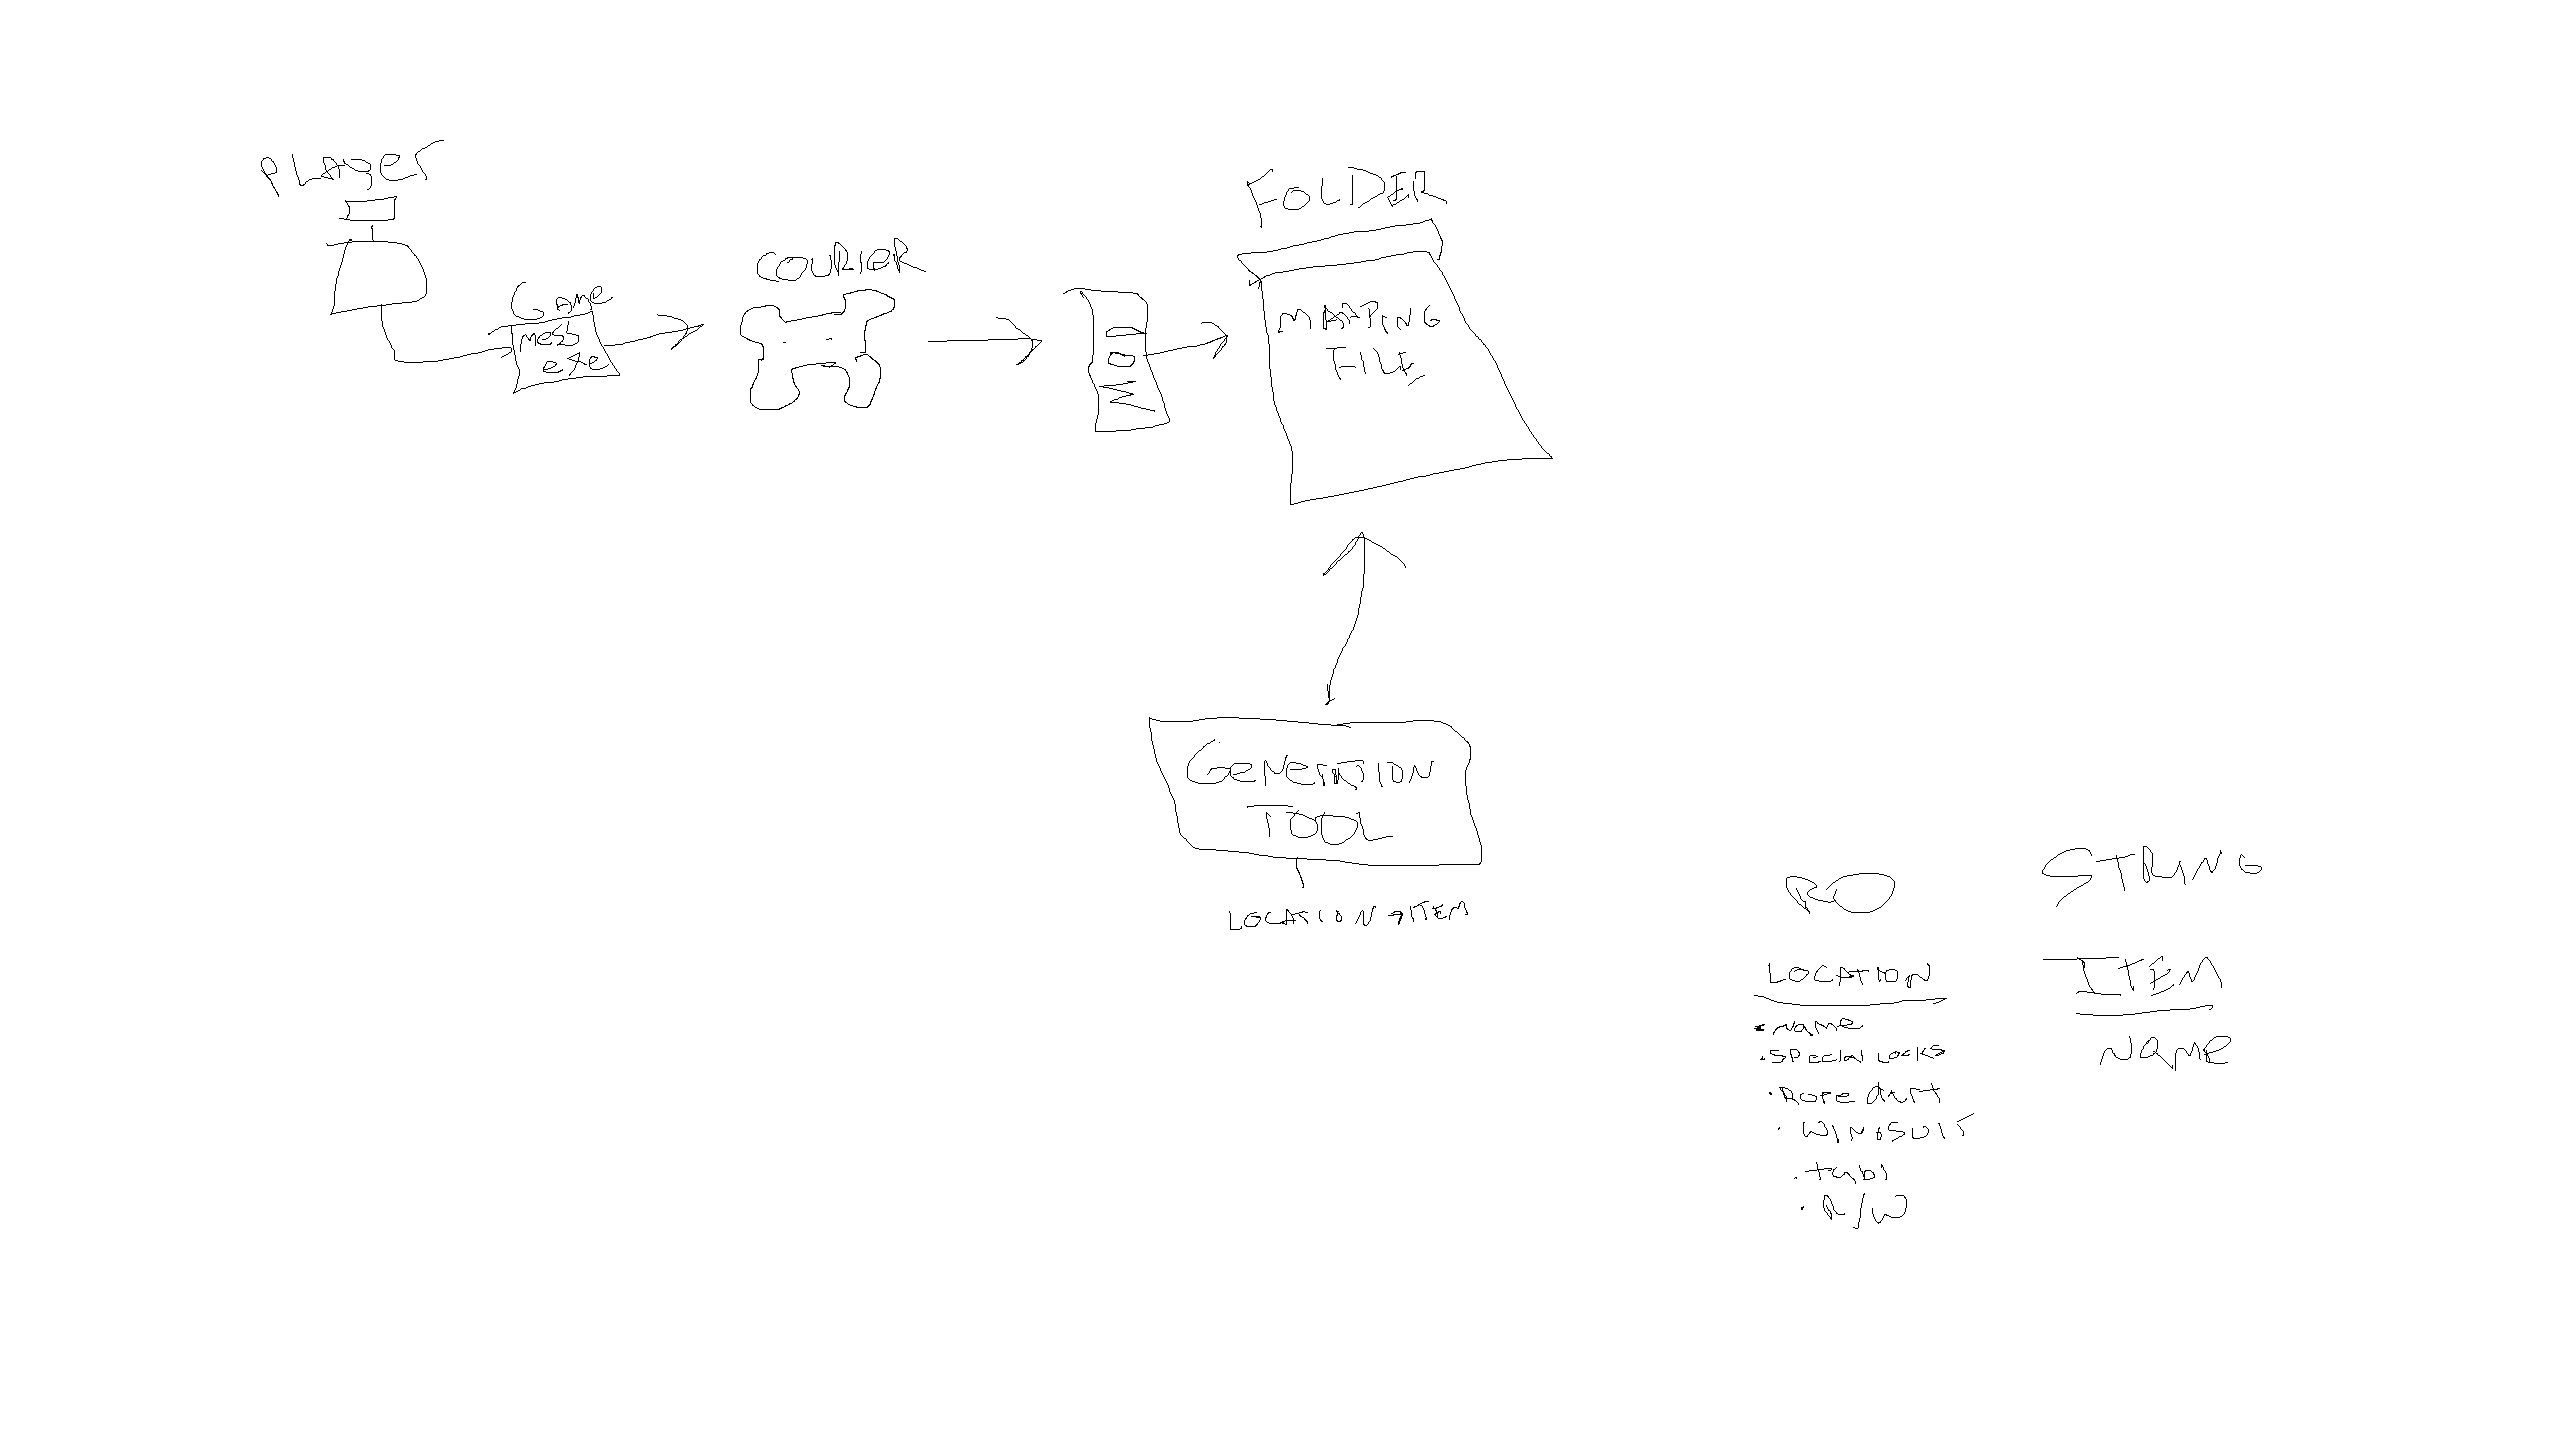 PLAYER
Game
mess
exe
COURIER
MOD
FOLDER
MAPPING
FILE
GENERATION
TOOL
LOCATION → ITEM
RO
STRING
LOCATION
• Name
• SPecial Locks
• Rope dart
• WINGSUIT
• tabi
• R/W
ITEM
NAME